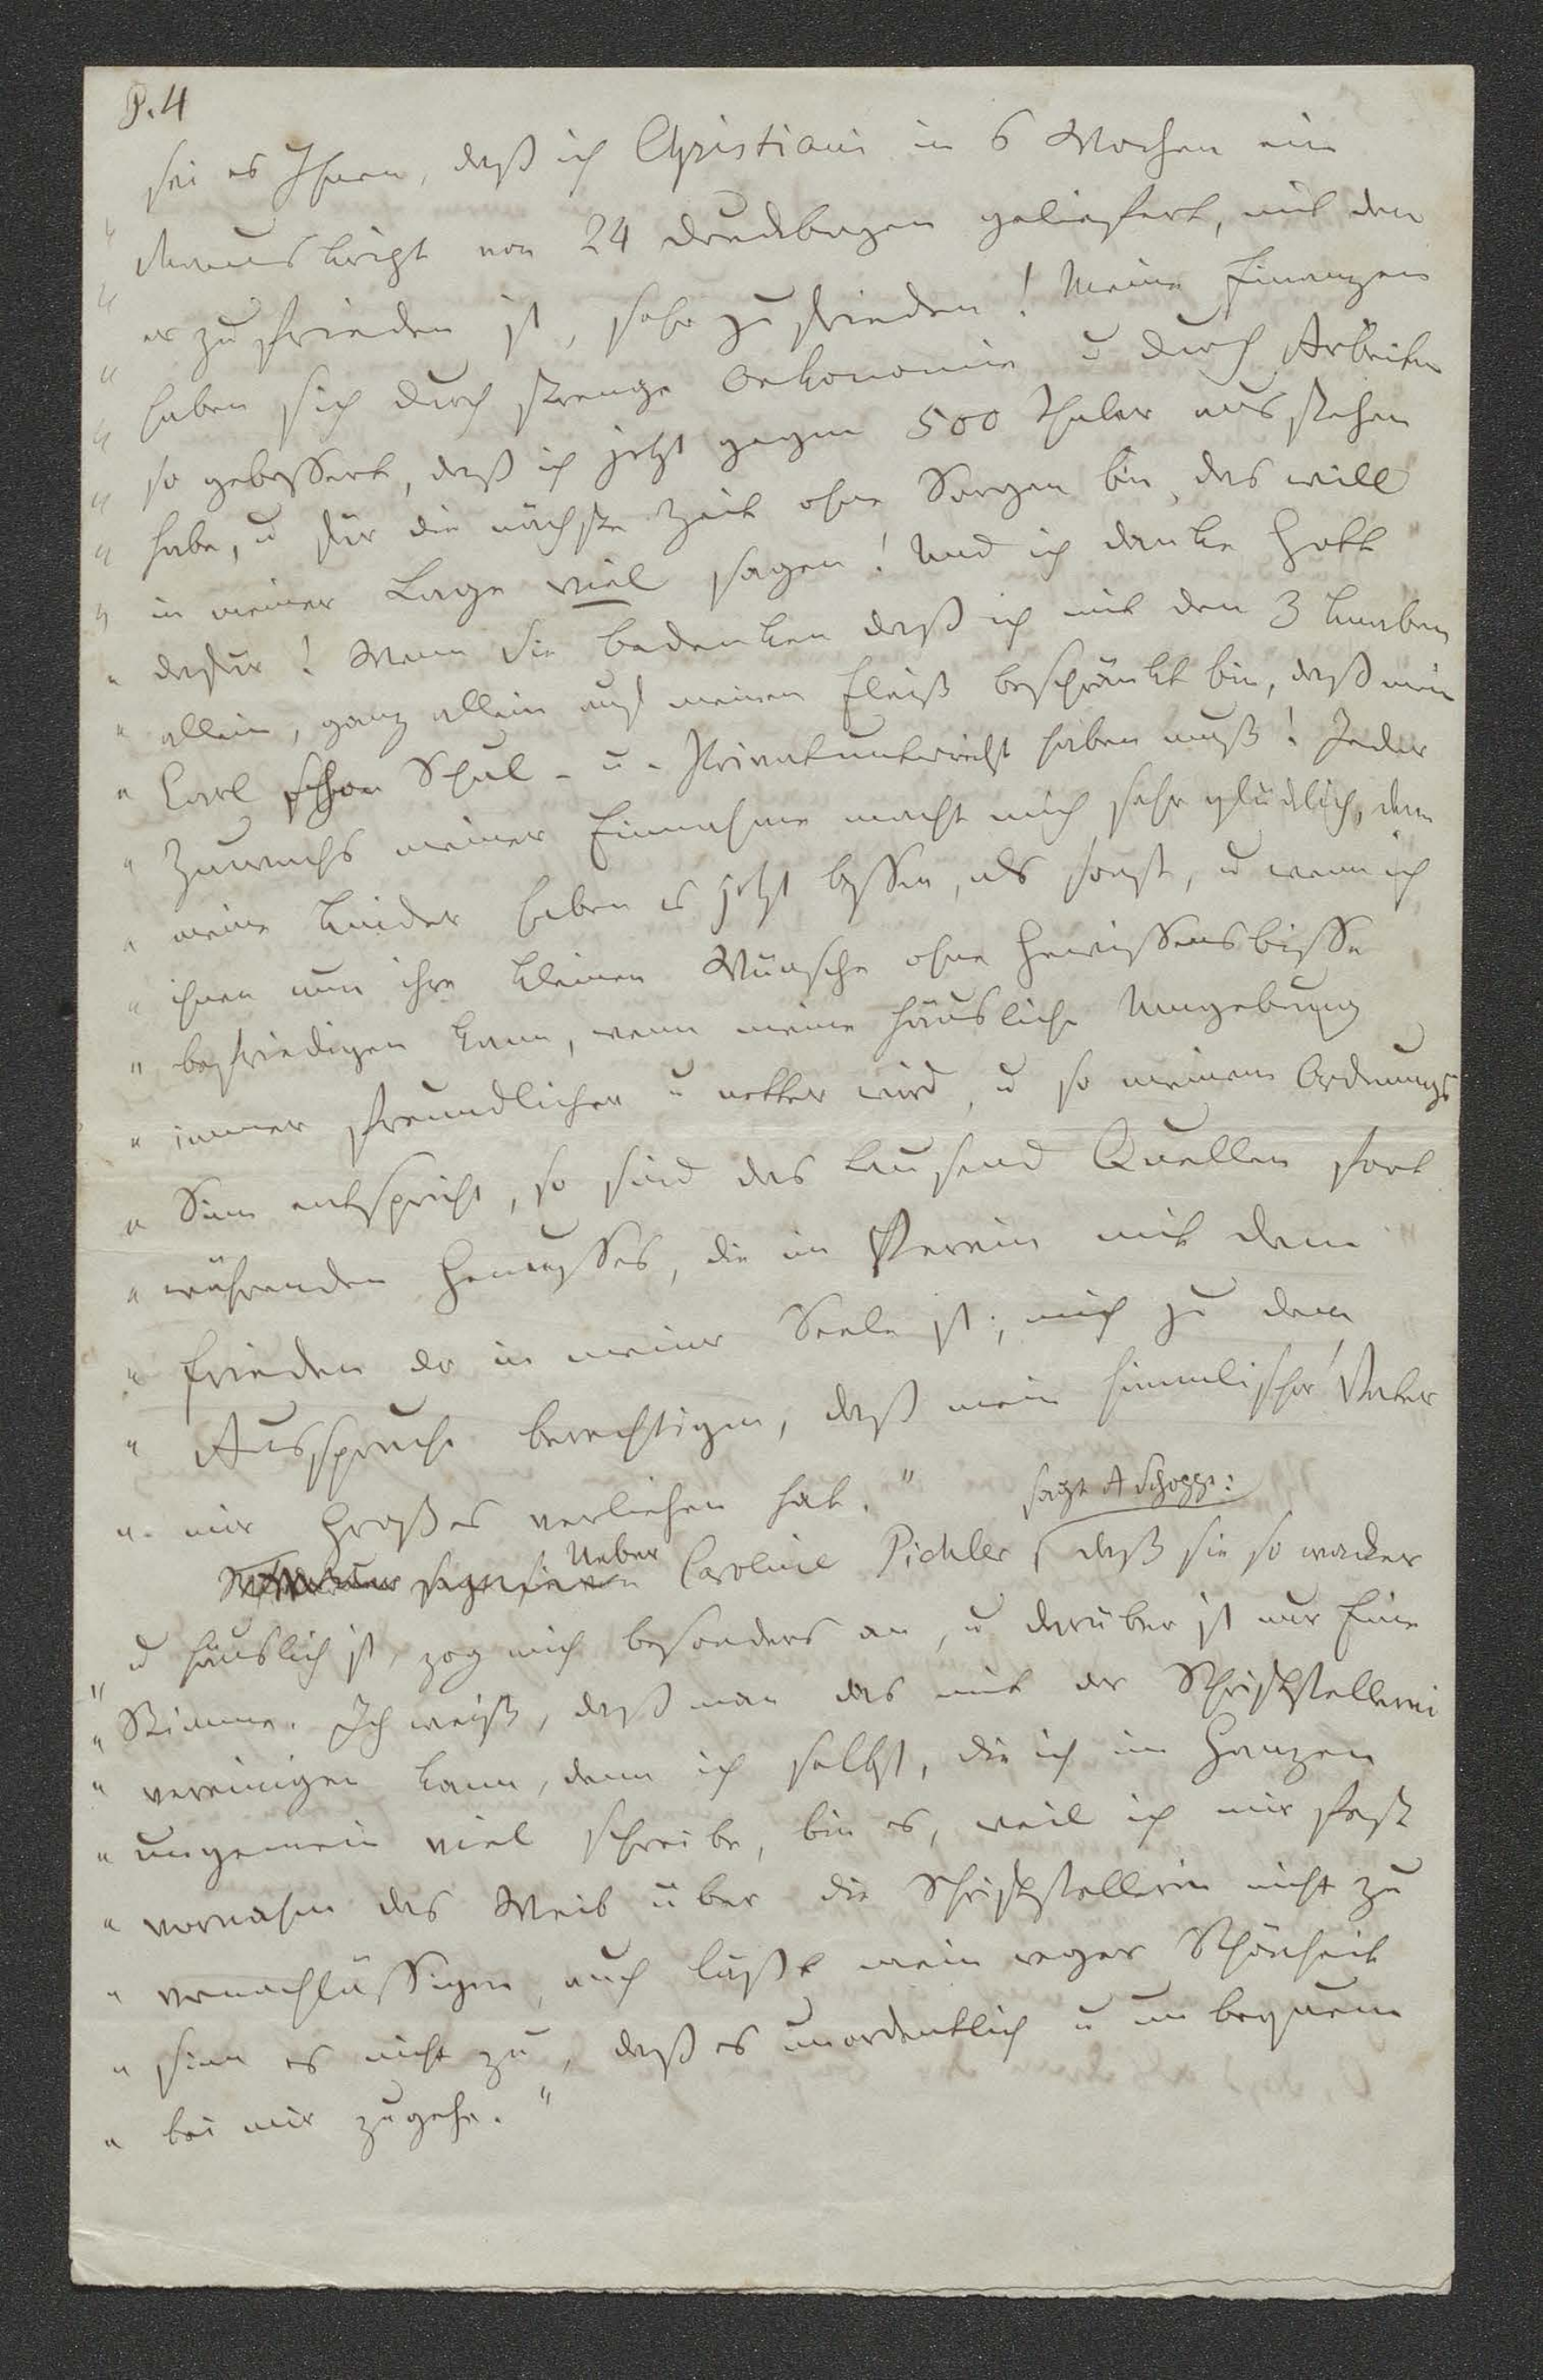 P. 4
sei es Ihnen, daß ich Christiani in 6 Wochen ein
" Manuskript von 24 Druckbogen geliefert, mit dem
" er zufrieden ist, sehr zufrieden! Meine Finanzen
" haben sich durch strenge Oekonomie u durch Arbeiten
" so gebessert, daß ich jetzt gegen 500 Thaler ausstehen
" habe, u für die nächste Zeit ohne Sorgen bin, das will
" in meiner Lage viel sagen! Und ich danke Gott
" dafür! Wenn Sie bedenken daß ich mit den 3 Knaben
" allein, ganz allein auf meinen Fleiß beschränkt bin, daß mein
" Carl schon Schul- u. Privatunterricht haben muß! Jeder
" Zuwachs meiner Einnahme macht mich sehr glücklich, denn
" meine Kinder haben es jetzt besser, als sonst, u wenn ich
" ihnen nun ihre kleinen Wünsche ohne Gewissensbisse
" befriedigen kann, wenn meine häusliche Umgebung
" immer freundlicher u netter wird, u so meinem Ordnungs
" Sinn entspricht, so sind das tausend Quellen fort
" währenden Genusses, die im Verein mit dem
" Frieden der in meiner Seele ist, mich zu dem
" Ausspruche berechtigen, daß mein himmlischer Vater
" mir Großes verliehen hat."
Ueber Caroline Pichler sagt A Schoppe: daß sie so wacker
" u häuslich ist, zog mich besonders an, u darüber ist nur Eine
" Stimme. Ich weiß, daß man das mit der Schriftstellerei
" vereinigen kann, denn ich selbst, die ich im Ganzen
" ungemein viel schreibe, bin es, weil ich mir fest
" vornahm das Weib über die Schriftstellerin nicht zu
" vernachlässigen, auch läßt mein reger Schönheit
" sinn es nicht zu, daß es unordentlich u unbequem
" bei mir zugehe."